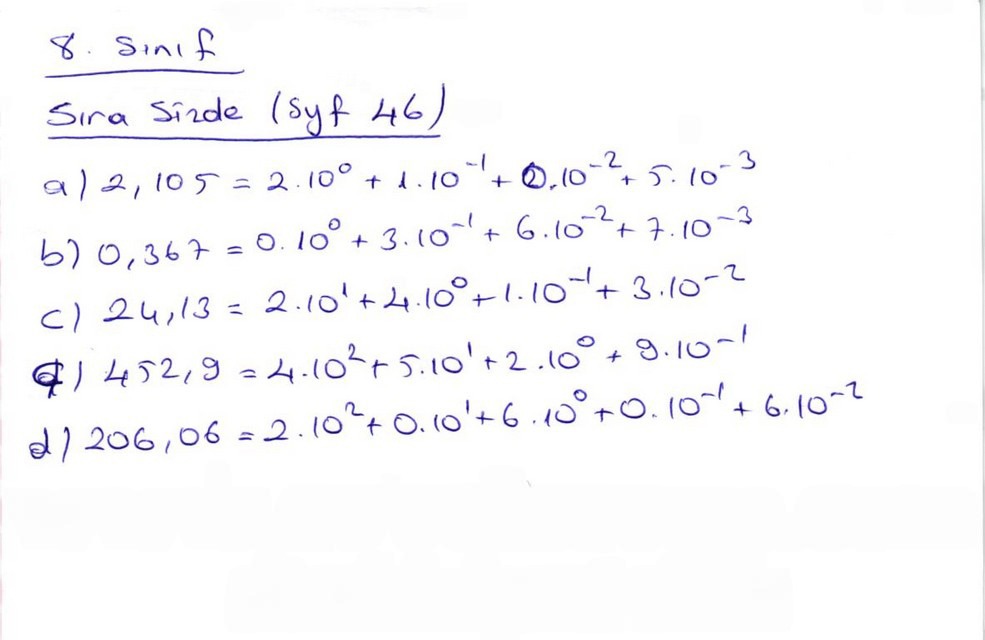 8. Sınıf
Sıra Sizde (Syf 46)
a) 2,105 = 2.10⁰ + 1.10⁻¹ + 0.10⁻² + 5.10⁻³
b) 0,367 = 0.10⁰ + 3.10⁻¹ + 6.10⁻² + 7.10⁻³
c) 24,13 = 2.10¹ + 4.10⁰ + 1.10⁻¹ + 3.10⁻²
ç) 452,9 = 4.10² + 5.10¹ + 2.10⁰ + 9.10⁻¹
d) 206,06 = 2.10² + 0.10¹ + 6.10⁰ + 0.10⁻¹ + 6.10⁻²